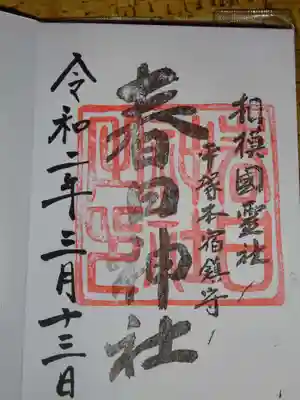 相模國霊社
平塚本宿鎮守
春日神社
令和二年三月十三日